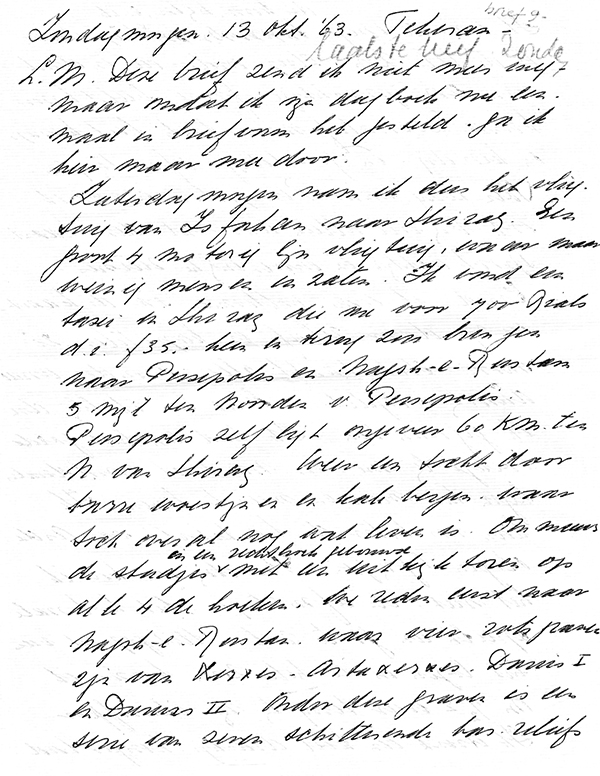 brief 9
Zondagmorgen. 13 okt. '63. Teheran -
laatste brief Zonde
L. M. Deze brief zend ik niet meer weg,
maar omdat ik mijn dagboek nu een-
maal in briefvorm heb gesteld. ga ik
hier maar mee door.
Zaterdagmorgen nam ik dus het vlieg-
tuig van Isfahan naar Shiraz. Een
groot 4 motorig lijn vliegtuig, waar maar
weinig mensen in zaten. Ik vond een
taxi in Shiraz die me voor 700 Rials
d.i. ƒ35.- heen en terug zou brengen
naar Persepolis en Naqsh-e-Rustam
5 mijl ten Noorden v Persepolis.
Persepolis zelf ligt ongeveer 60 KM. ten
N. van Shiraz. Weer een tocht door
dorre woestijnen en kale bergen. waar
toch overal nog wat leven is. Ommuur-
en een rechthoek gebouwd
de stadjes met een uitkijk toren op
alle 4 de hoeken. We reden eerst naar
Naqsh-e-Rustam. waar vier rotsgraven
zijn van Xerxes - Artaxerxes. Darius I
en Darius II. Onder deze graven is een
serie van zeven schitterende bas reliefs